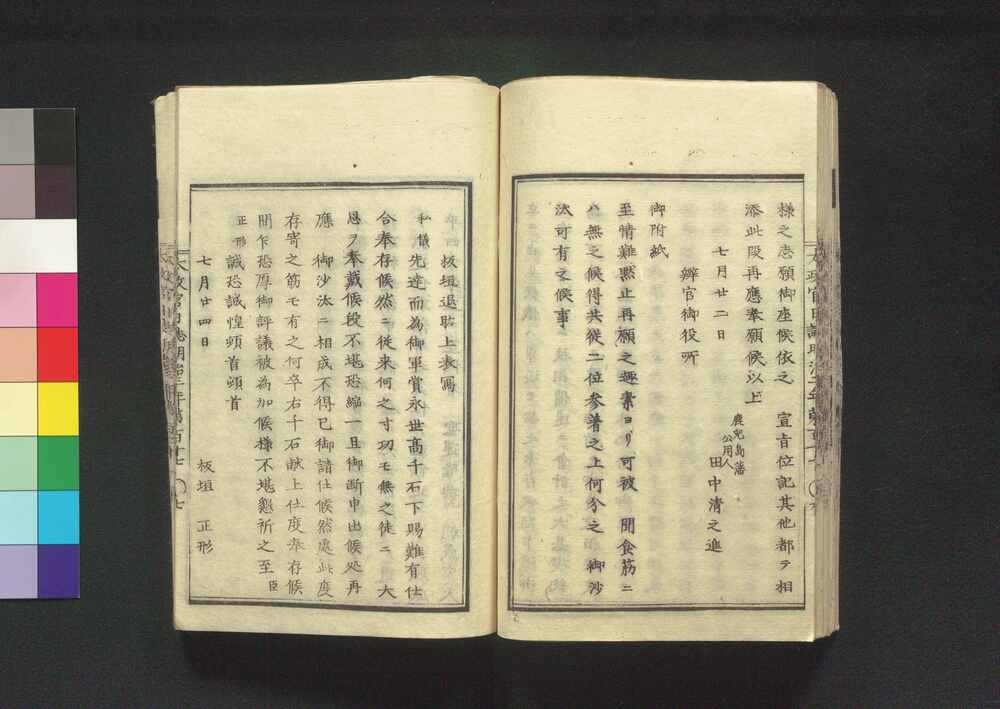 様之志願御座候依之　宣旨位記其他都テ相
添此段再應奉願候以上
七月廿二日
鹿児島藩
公用人
田中清之進
辨官御役所
御附紙
至情難黙止再願之趣素ヨリ可被　聞食筋ニ
ハ無之候得共従二位参着之上何分之　御沙
汰可有之候事
板垣退助上表寫
私儀先達而為御軍賞永世高千石下賜難有仕
合奉存候然ニ従来何之寸功モ無之徒ニ　大
恩ヲ奉戴候段不堪恐縮一旦御断申出候処再
應　御沙汰ニ相成不得已御請仕候然處此度
存寄之筋モ有之何卒右千石献上仕度奉存候
間乍恐厚御評議被為加候様不堪懇祈之至　臣
正形誠恐誠惶頓首頓首
七月廿四日
板垣　正形